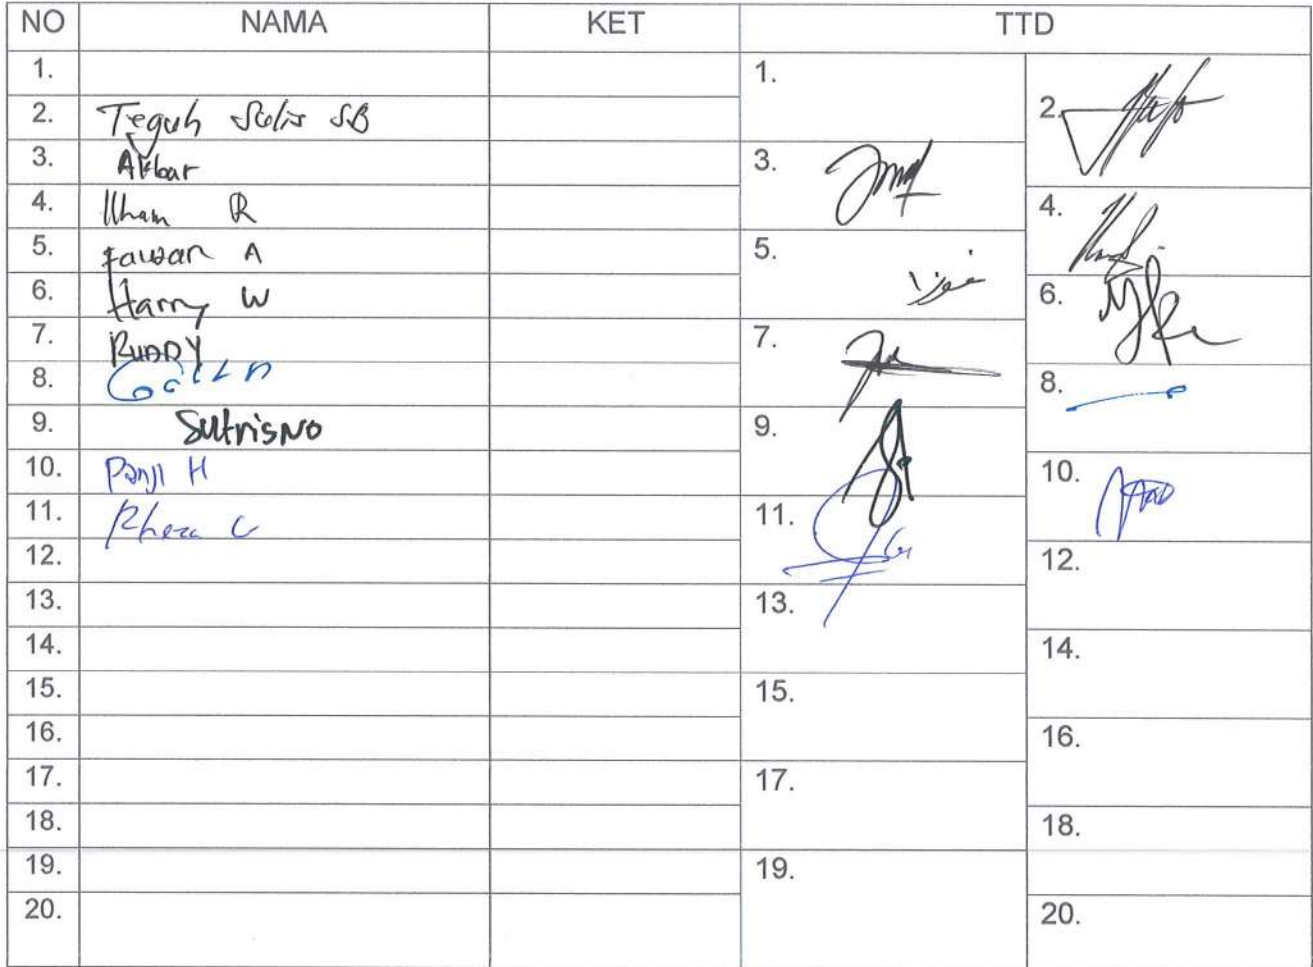 NO NAMA KET TTD
1. 1.
2. Teguh Sulis SB 2.
3. Akbar 3.
4. Ilham R 4.
5. Fauzan A 5.
6. Harry W 6.
7. RUDDY 7.
8. 8.
9. SutrisNo 9.
10. Panji H 10.
11. Rheza G 11.
12. 12.
13. 13.
14. 14.
15. 15.
16. 16.
17. 17.
18. 18.
19. 19.
20. 20.